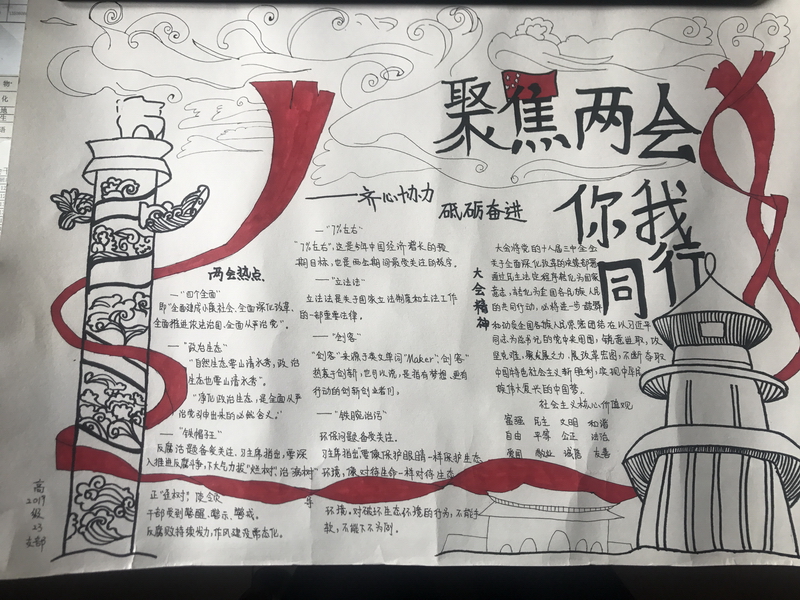 聚焦两会
你我
同行
——齐心协力
砥砺奋进
两会热点
—"四个全面"
即"全面建成小康社会、全面深化改革、
全面推进依法治国、全面从严治党"。
—"政治生态"
"自然生态要山清水秀，政治
生态也要山清水秀"。
"净化政治生态，是全面从严
治党引申出来的必然含义。"
—"铁帽子王"
反腐话题备受关注，习主席指出，要深
入推进反腐斗争，下大气力拔"烂树"，治"病树"
正"歪树"，使领
导
干部受到警醒、警示、警戒。
反腐败持续发力，作风建设常态化。
—"7%左右"
"7%左右"，这是今年中国经济增长的预
期目标，也是两会期间最受关注的数字。
—"立法法"
立法法是关于国家立法制度和立法工作
的一部重要法律。
—"创客"
"创客"来源于英文单词"Maker"，创客"
热衷于创新，也可以说，是指有梦想、更有
行动的创新创业者们。
—"铁腕治污"
环保问题备受关注。
习主席指出，要像保护眼睛一样保护生态
环境，像对待生命一样对待生态
环境，对破坏生态环境的行为，不能手
软，不能下不为例。
大会精神
大会将党的十八届三中全会
关于全面深化改革的决策部署
通过民主法定程序转化为国家
意志，转化为全国各民族人民
的共同行动，必将进一步鼓舞
和动员全国各族人民紧密团结在以习近平
同志为总书记的党中央周围，锐意进取，攻
坚克难，聚发展之力，展改革宏图，不断夺取
中国特色社会主义新胜利，实现中华民
族伟大复兴的中国梦。
社会主义核心价值观
富强 民主 文明 和谐
自由 平等 公正 法治
爱国 敬业 诚信 友善
高2019级23支部
物
化
地
生